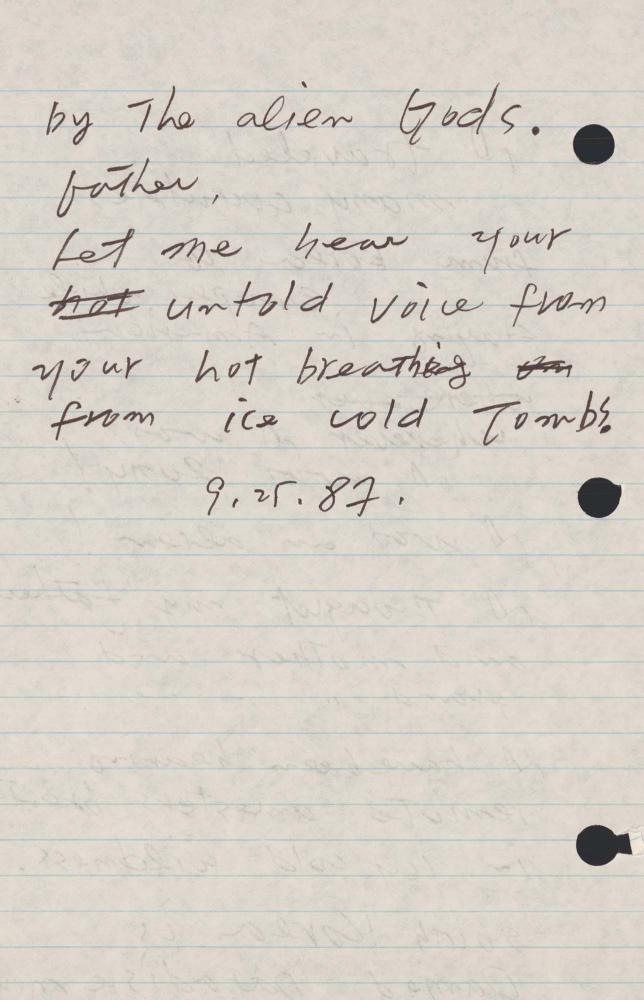 by The alien Gods.
father,
Let me hear your
hot untold voice from
your hot breathing on
from ice cold Tombs.
9.25.87.